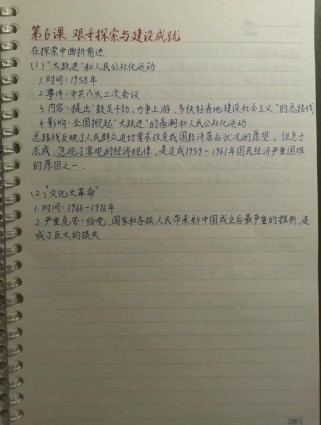 第6课 艰辛探索与建设成就
在探索中曲折前进
(1)"大跃进"和人民公社化运动
1.时间:1958年
2.事件:中共八大二次会议
3.内容:提出"鼓足干劲,力争上游,多快好省地建设社会主义"的总路线
4.影响:全国掀起"大跃进"的高潮和人民公社化运动
总路线反映了人民群众迫切要求改变我国经济落后状况的愿望。但急于
求成,忽视了客观的经济规律,是造成1959-1961年国民经济严重困难
的原因之一.
(2)"文化大革命"
1.时间:1966-1976年
2.严重危害:给党、国家和各族人民带来新中国成立后最严重的挫折,造
成了巨大的损失